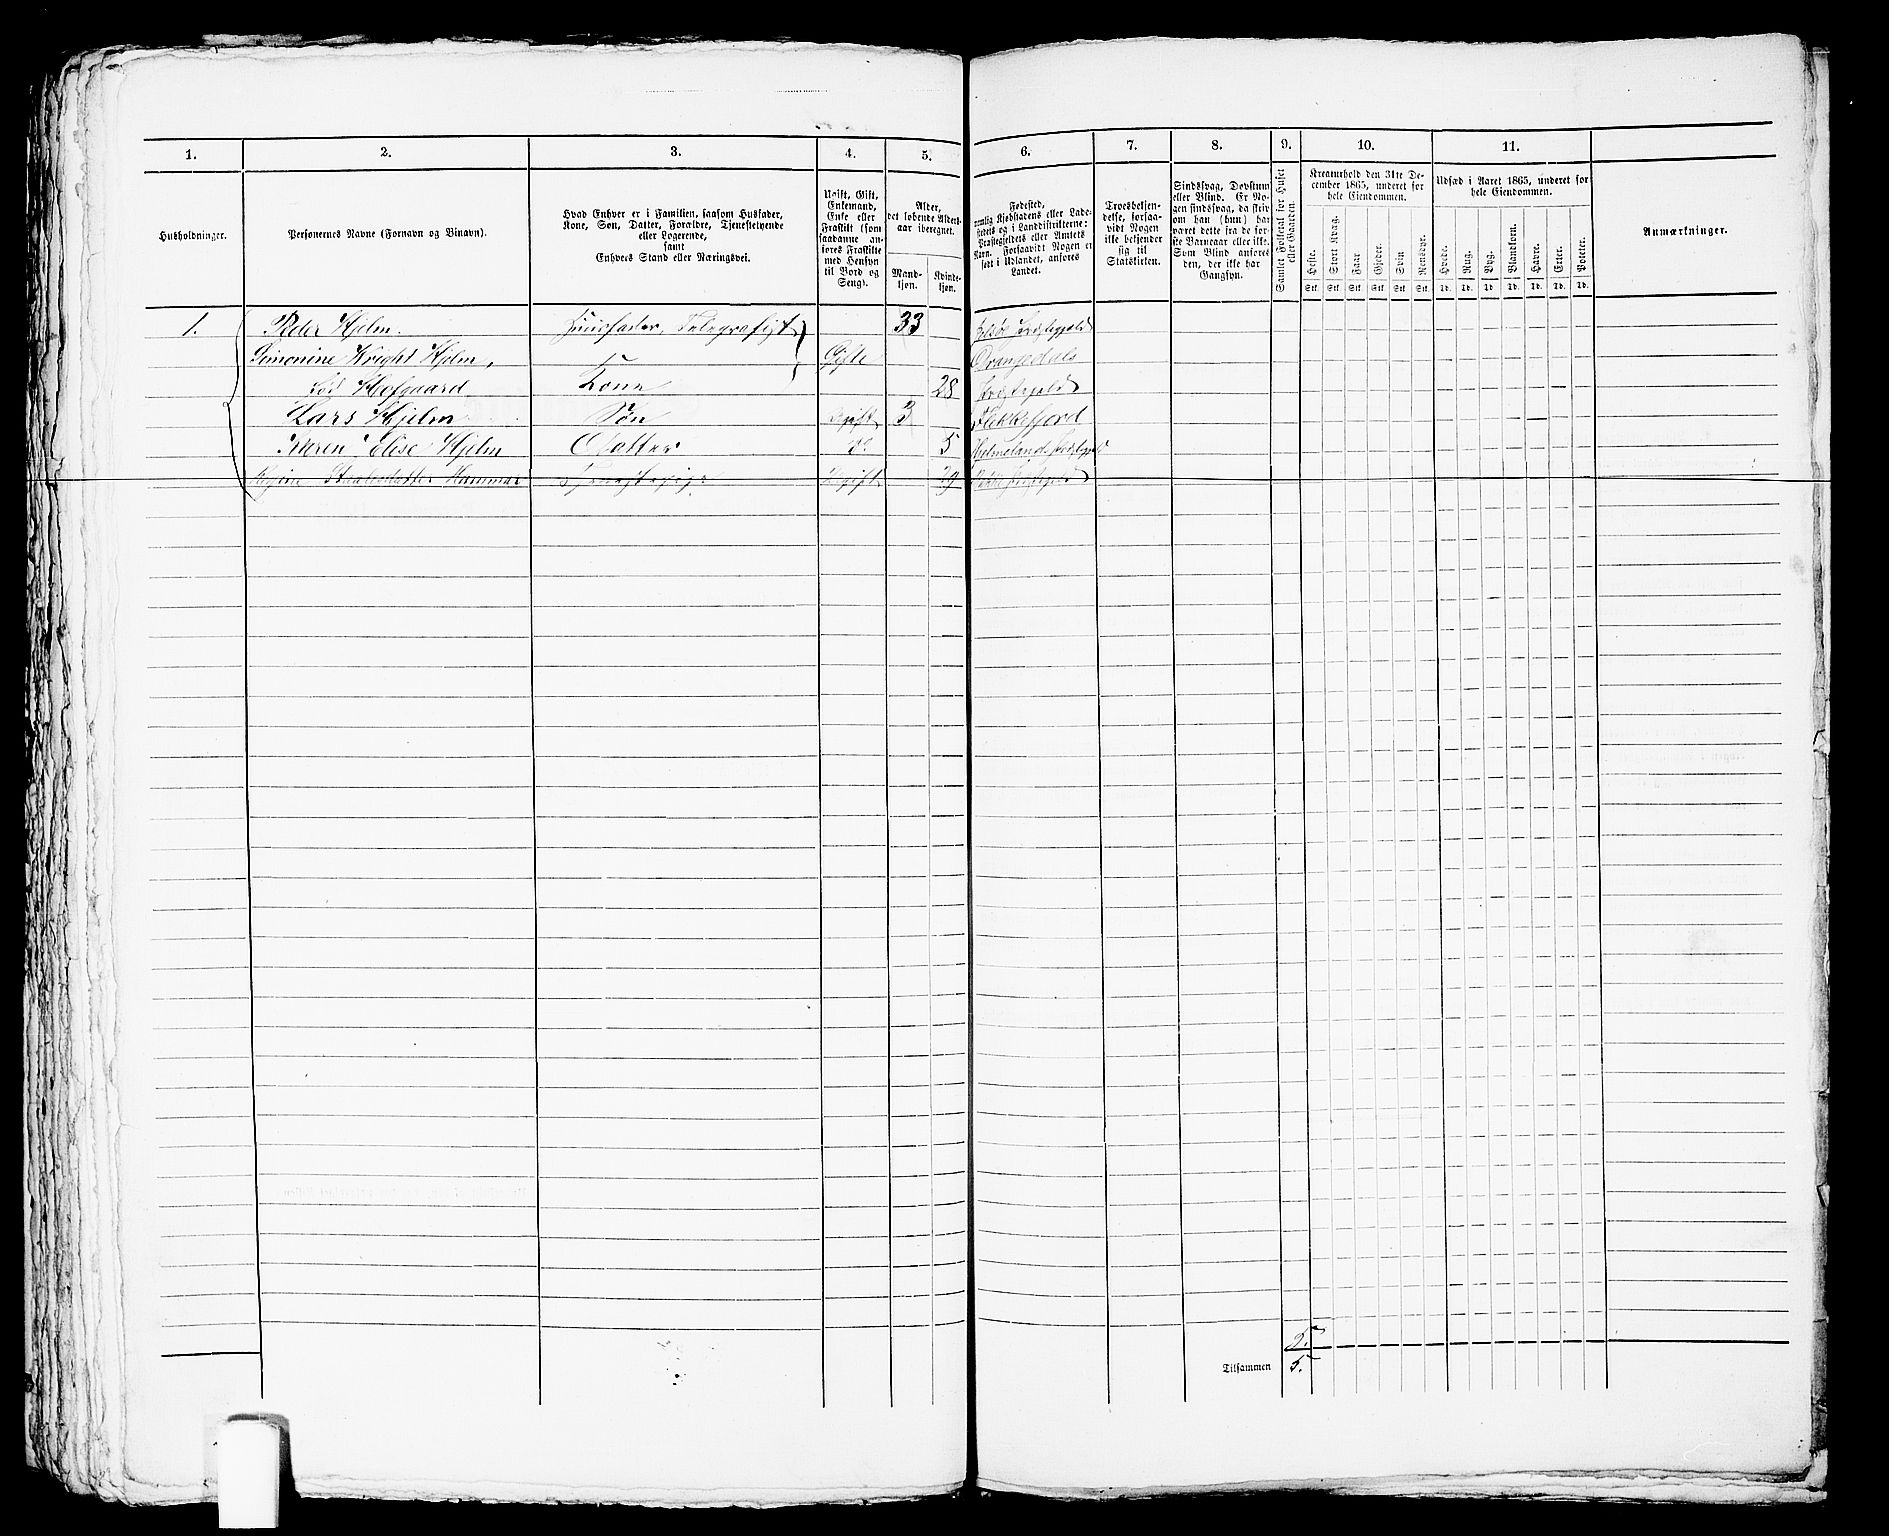 1. 2. 3. 4. 5. 6. 7. 8. 9. 10. 11.
Husholdninger.
Personernes Navne (Fornavn og Binavn).
Hvad Enhver er i Familien, saasom Husfader,
Kone, Søn, Datter, Forældre, Tjenestetyende
eller Logerende,
samt
Enhvers Stand eller Næringsvei.
Ugift, Gift,
Enkemand,
Enke eller
Fraskilt (som
saadanne an-
føres Fraskilte
med Hensyn
til Bord og
Seng).
Alder,
det løbende Alders-
aar iberegnet.
Mand-
kjøn.
Kvinde-
kjøn.
Fødested,
nemlig Kjøbstadens eller Lade-
stedets og i Landdistrikterne:
Præstegjeldets eller Amtets
Navn. Forsaavidt Nogen er
født i Udlandet, anføres
Landet.
Troesbekjen-
delse, forsaa-
vidt Nogen
ikke bekjender
sig til
Statskirken.
Sindssvag, Døvstum
eller Blind. Er No-
gen sindssvag, da skriv
om han (hun) har
været dette fra de før-
ste Barneaar eller ikke.
Som Blind anføres
den, der ikke har
Gangsyn.
Samlet Folketal for Huset
eller Gaarden.
Kreaturhold den 31te De-
cember 1865, underet for
hele Eiendommen.
Heste. Stort Kvæg. Faar Gjeder. Svin Rensdyr.
Stk. Stk. Stk. Stk. Stk. Stk.
Udsæd i Aaret 1865, underet for
hele Eiendommen.
Hvede. Rug. Byg. Blandkorn. Havre. Erter. Poteter.
Td. Td. Td. Td. Td. Td. Td.
Anmærkninger.
1. Peder Hjelm. Huusfader, Telegrafist 33 Præstegjeld
Simonine Wright Hjelm, Gifte Drangedals
født Hofgaard Kone 28 Præstegjeld
Lars Hjelm Søn Ugift 3 Flekkefjord
Maren Elise Hjelm Datter do. 5
Hammer Tjenestepige Ugift 29 Præstegjeld
5.
Tilsammen 5.